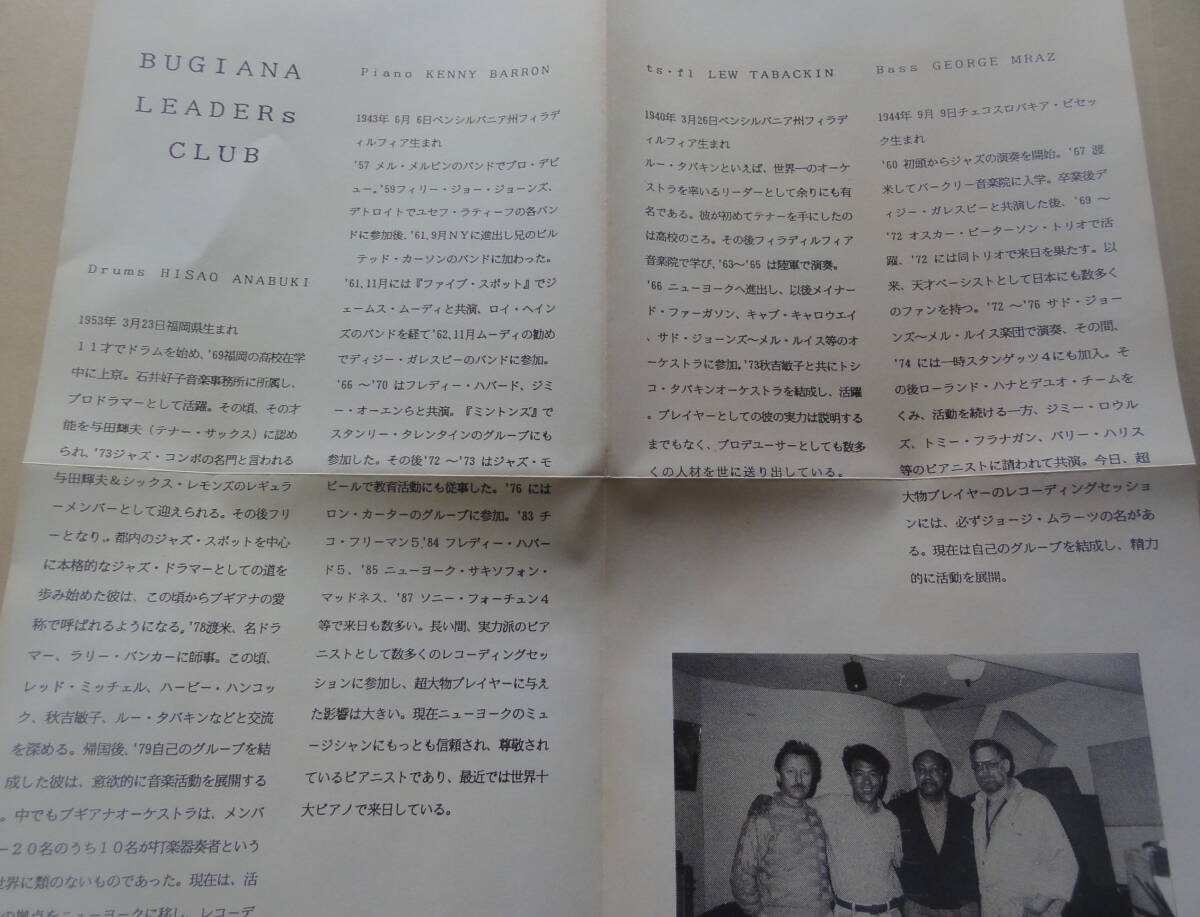 BUGIANA
LEADERs
CLUB
Drums HISAO ANABUKI
1953年 3月23日福岡県生まれ
11才でドラムを始め、'69福岡の高校在学
中に上京。石井好子音楽事務所に所属し、
プロドラマーとして活躍。その頃、その才
能を与田輝夫（テナー・サックス）に認め
られ、'73ジャズ・コンボの名門と言われる
与田輝夫＆シックス・レモンズのレギュラ
ーメンバーとして迎えられる。その後フリ
ーとなり、都内のジャズ・スポットを中心
に本格的なジャズ・ドラマーとしての道を
歩み始めた彼は、この頃からブギアナの愛
称で呼ばれるようになる。'78渡米、名ドラ
マー、ラリー・バンカーに師事。この頃、
レッド・ミッチェル、ハービー・ハンコッ
ク、秋吉敏子、ルー・タバキンなどと交流
を深める。帰国後、'79自己のグループを結
成した彼は、意欲的に音楽活動を展開する
。中でもブギアナオーケストラは、メンバ
ー20名のうち10名が打楽器奏者という
世界に類のないものであった。現在は、活
の拠点をニューヨークに移し、レコーデ
Piano KENNY BARRON
1943年 6月 6日ペンシルバニア州フィラデ
ィルフィア生まれ
'57 メル・メルビンのバンドでプロ・デビ
ュー。'59フィリー・ジョー・ジョーンズ、
デトロイトでユセフ・ラティーフの各バン
ドに参加後、'61.9月NYに進出し兄のビル
テッド・カーソンのバンドに加わった。
'61.11月には『ファイブ・スポット』でジ
ェームス・ムーディと共演、ロイ・ヘイン
ズのバンドを経て'62.11月ムーディの勧め
でディジー・ガレスビーのバンドに参加。
'66 ～'70 はフレディー・ハバード、ジミ
ー・オーエンらと共演。『ミントンズ』で
スタンリー・タレンタインのグループにも
参加した。その後'72 ～'73 はジャズ・モ
ビールで教育活動にも従事した。'76 には
ロン・カーターのグループに参加。'83 チ
コ・フリーマン5,'84 フレディー・ハバー
ド5、'85 ニューヨーク・サキソフォン・
マッドネス、'87 ソニー・フォーチュン4
等で来日も数多い。長い間、実力派のピア
ニストとして数多くのレコーディングセッ
ションに参加し、超大物プレイヤーに与え
た影響は大きい。現在ニューヨークのミュ
ージシャンにもっとも信頼され、尊敬され
ているピアニストであり、最近では世界十
大ピアノで来日している。
ts・fl LEW TABACKIN
1940年 3月26日ペンシルバニア州フィラデ
ィルフィア生まれ
ルー・タバキンといえば、世界一のオーケ
ストラを率いるリーダーとして余りにも有
名である。彼が初めてテナーを手にしたの
は高校のころ。その後フィラディルフィア
音楽院で学び、'63～'65 は陸軍で演奏。
'66 ニューヨークへ進出し、以後メイナー
ド・ファーガソン、キャブ・キャロウエイ
、サド・ジョーンズ～メル・ルイス等のオ
ーケストラに参加。'73秋吉敏子と共にトシ
コ・タバキンオーケストラを結成し、活躍
。プレイヤーとしての彼の実力は説明する
までもなく、プロデユーサーとしても数多
くの人材を世に送り出している。
Bass GEORGE MRAZ
1944年 9月 9日チェコスロバキア・ピセッ
ク生まれ
'60 初頭からジャズの演奏を開始。'67 渡
米してバークリー音楽院に入学。卒業後デ
ィジー・ガレスビーと共演した後、'69 ～
'72 オスカー・ピーターソン・トリオで活
躍、'72 には同トリオで来日を果たす。以
来、天才ベーシストとして日本にも数多く
のファンを持つ。'72 ～'76 サド・ジョー
ンズ～メル・ルイス楽団で演奏、その間、
'74 には一時スタンゲッツ4にも加入。そ
の後ローランド・ハナとデユオ・チームを
くみ、活動を続ける一方、ジミー・ロウル
ズ、トミー・フラナガン、バリー・ハリス
等のピアニストに請われて共演。今日、超
大物プレイヤーのレコーディングセッショ
ンには、必ずジョージ・ムラーツの名があ
る。現在は自己のグループを結成し、精力
的に活動を展開。